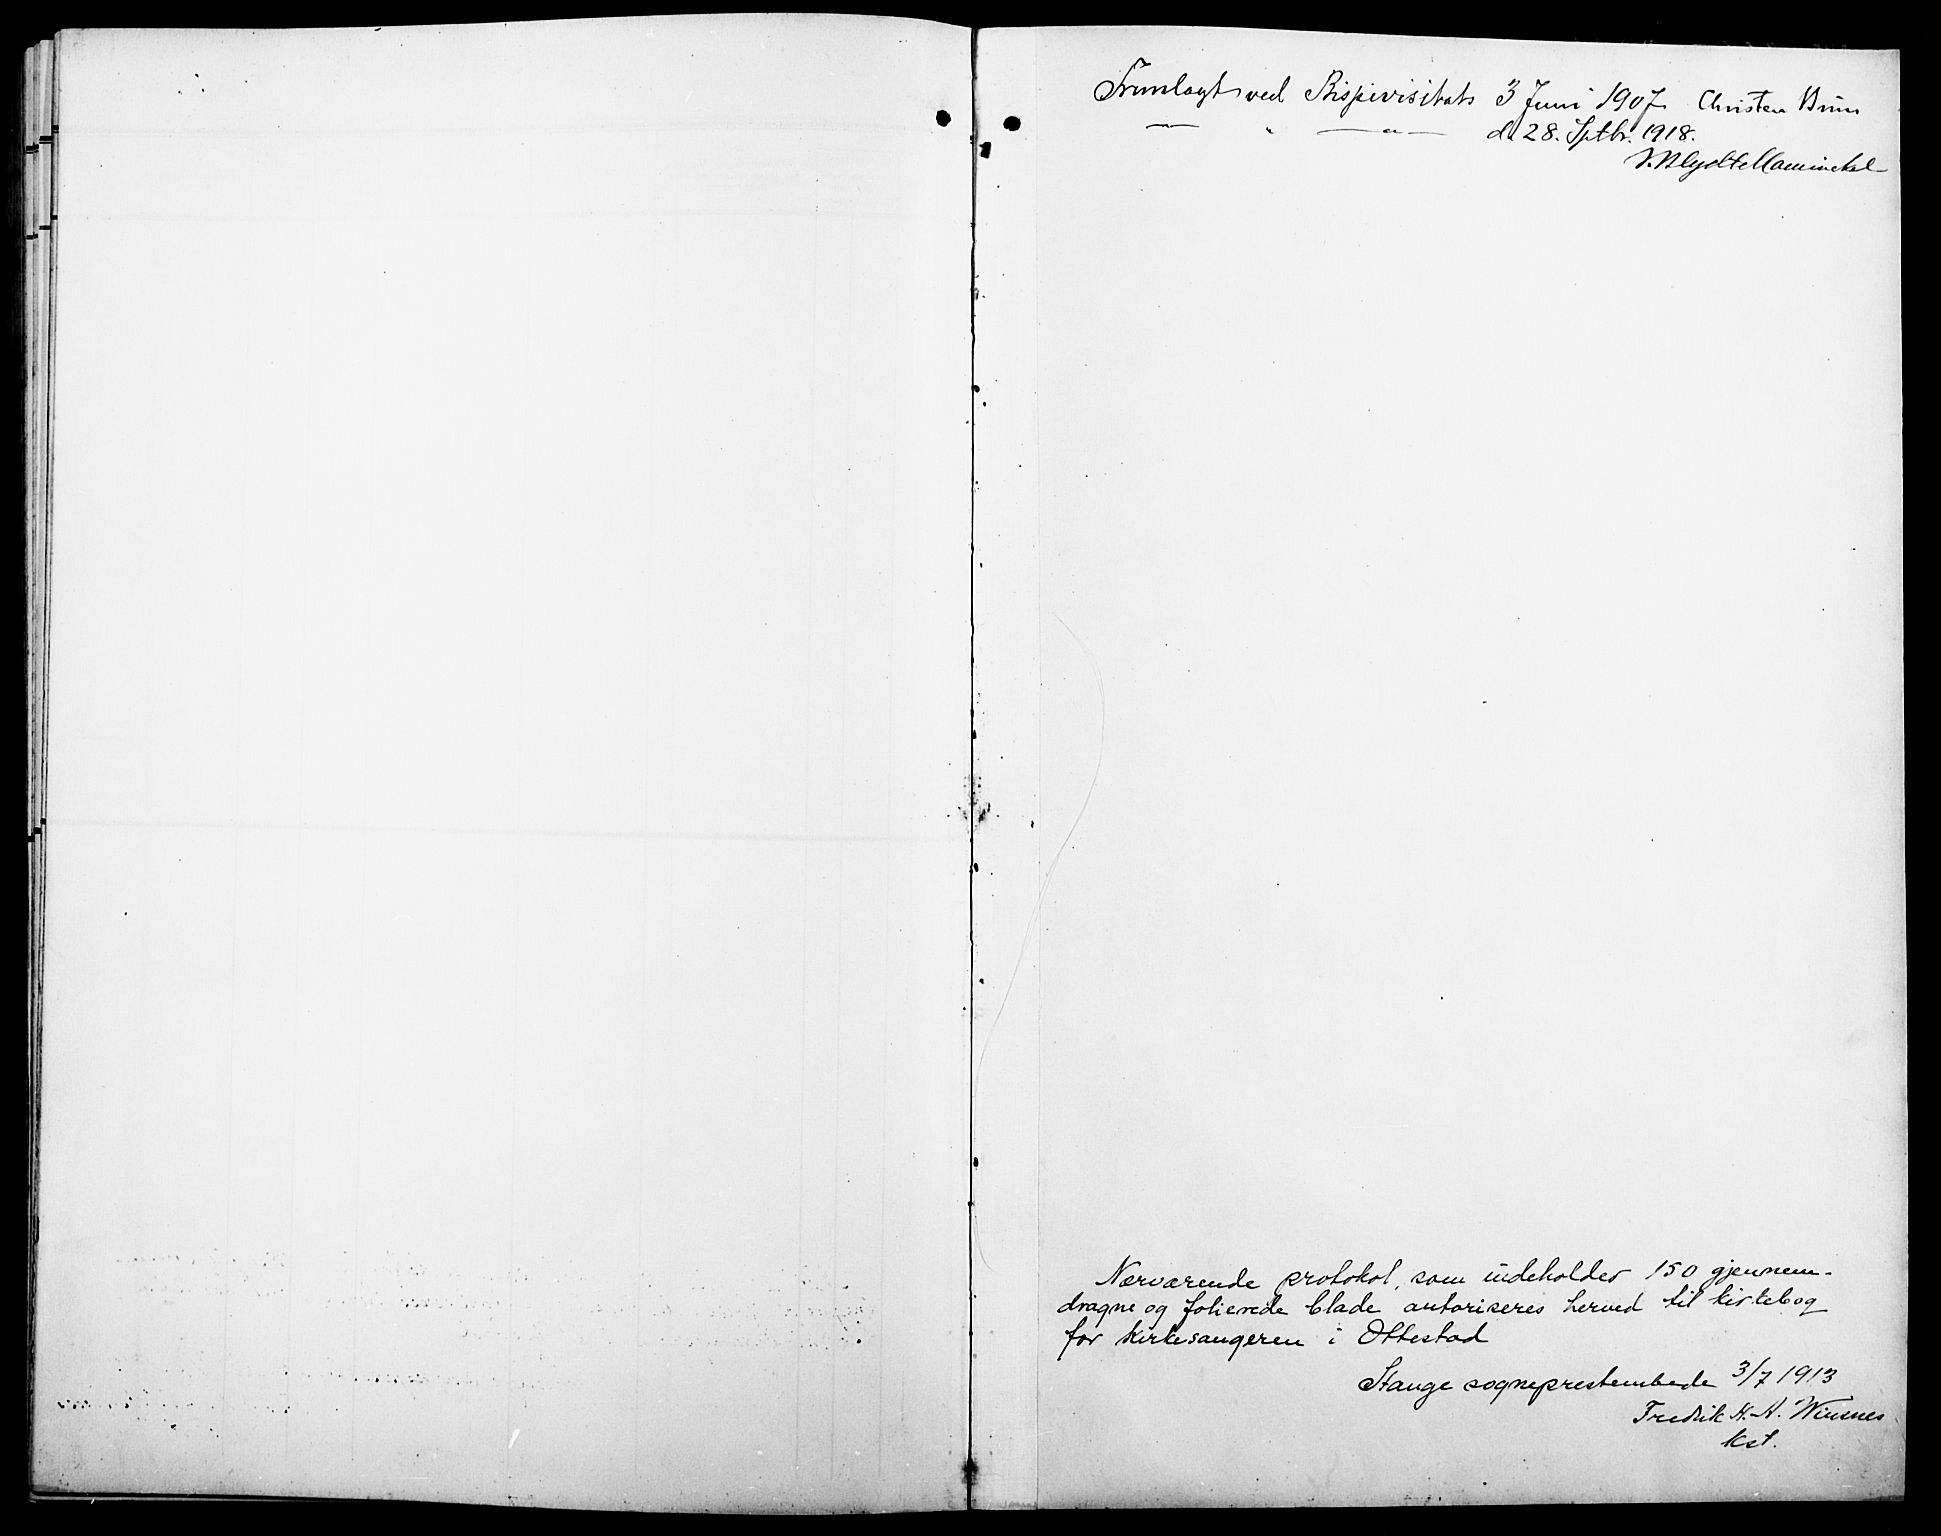 Fremlagt ved Bispevisitats 3 Juni 1907 Christen Brun
— " — " — d. 28. Sptbr. 1918.
Nærværende protokol, som indeholder 150 gjennem-
dragne og folierede blade autoriseres herved til kirkebog
for kirkesangeren i Ottestad
Stange sogneprestembede 3/7 1913
Fredrik N. A. Wiesnes
kst.